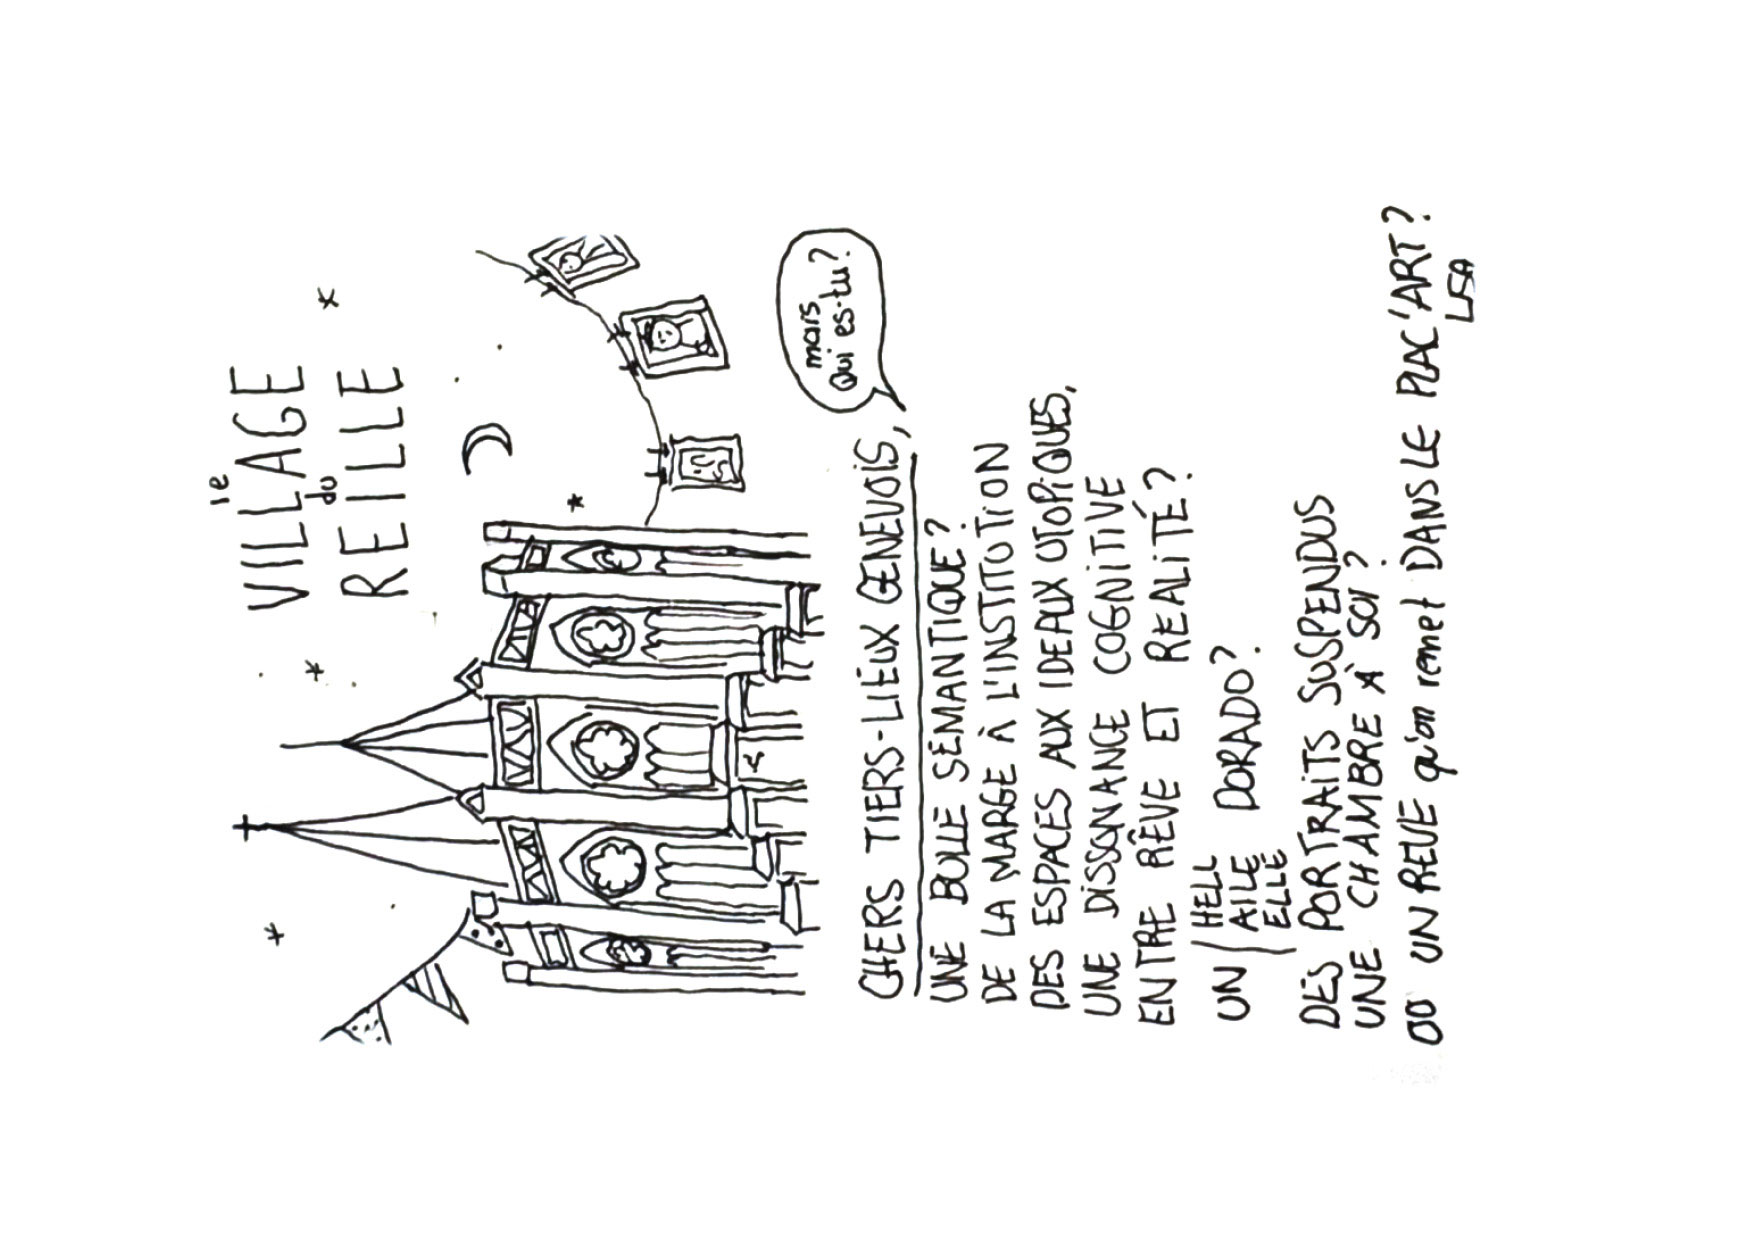 le
VILLAGE
du
REILLE
mais
Qui es-tu?
CHERS TIERS-LIEUX GENEVOIS,
UNE BULLE SÉMANTIQUE?
DE LA MARGE À L'INSTITUTION
DES ESPACES AUX IDEAUX UTOPIQUES,
UNE DISSONANCE COGNITIVE
ENTRE RÊVE ET REALITÉ?
UN HELL DORADO?
AILE
ELLE
DES PORTRAITS SUSPENDUS
UNE CHAMBRE À SOI?
OU UN REVE qu'on remet DANS LE PLAC'ART?
LISA